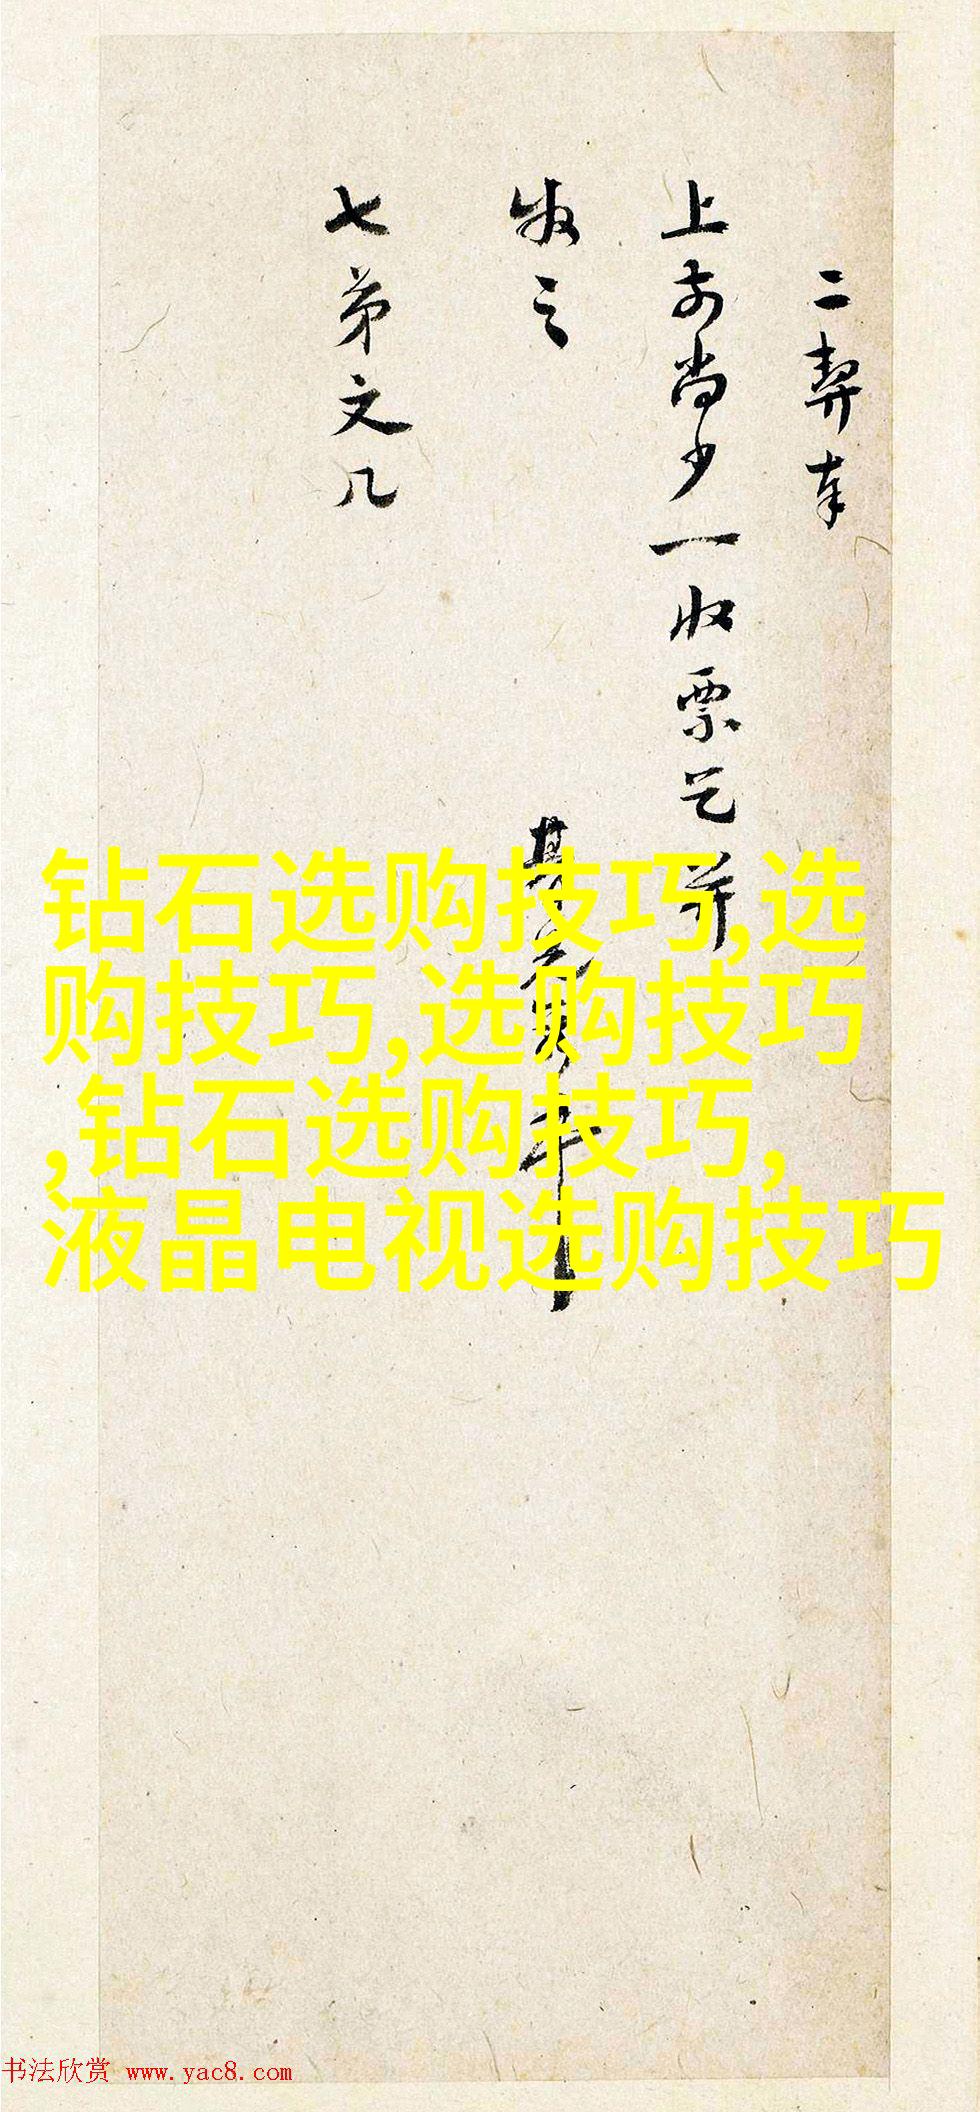 二契奉
上前尚少一收票乞并
发之
期元贞年
七弟文几
钻石选购技巧,选
购技巧,选购技巧
,钻石选购技巧,
液晶电视选购技巧
书法欣赏 www.yac8.com